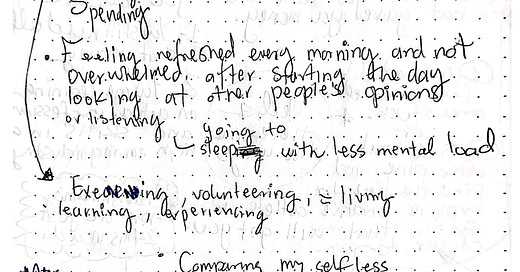 Spending
• Feeling refreshed every morning and not
overwhelmed after starting the day
looking at other people's opinions
or listening
going to
sleep with less mental load
Exercising, volunteering, = living
learning, experiencing
• Comparing my self less